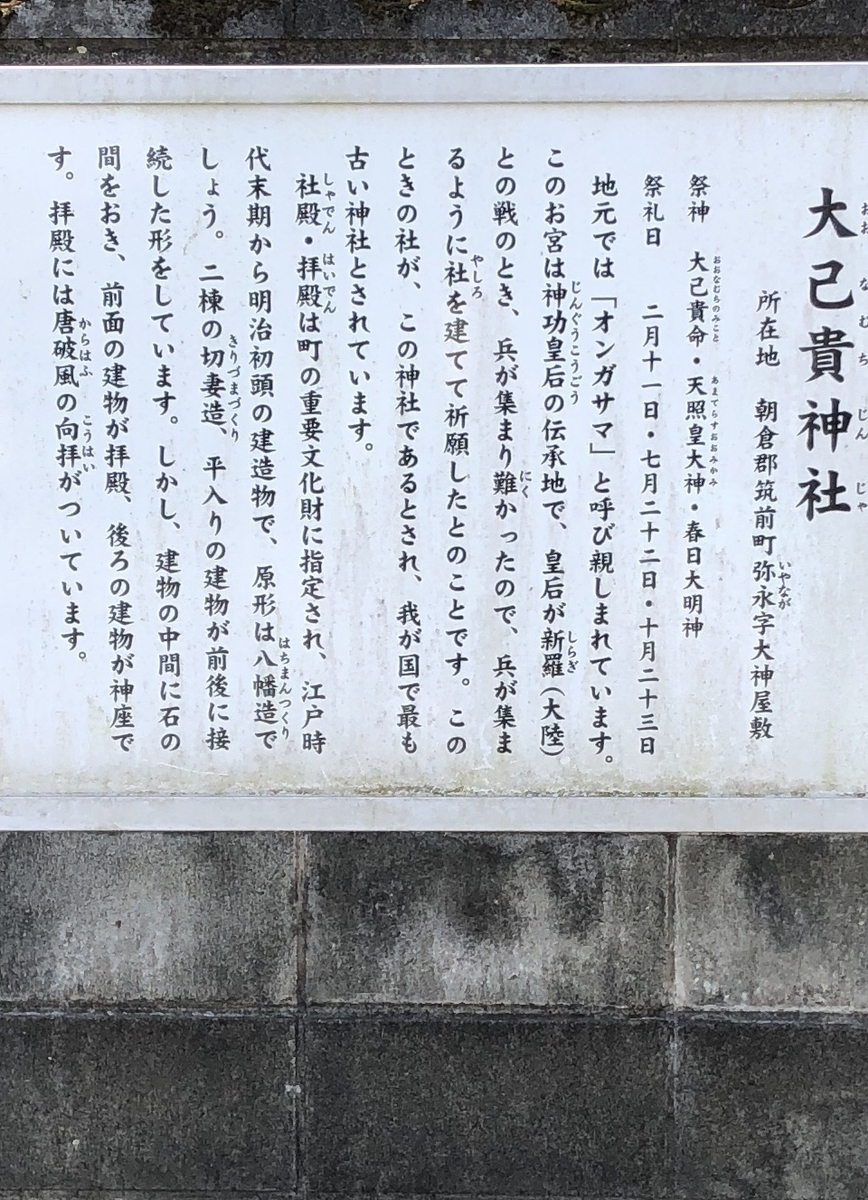 大己貴神社
所在地　朝倉郡筑前町弥永字大神屋敷
祭神　大己貴命・天照皇大神・春日大明神
祭礼日　二月十一日・七月二十二日・十月二十三日
地元では「オンガサマ」と呼び親しまれています。
このお宮は神功皇后の伝承地で、皇后が新羅（大陸）
との戦のとき、兵が集まり難かったので、兵が集ま
るように社を建てて祈願したとのことです。この
ときの社が、この神社であるとされ、我が国で最も
古い神社とされています。
社殿・拝殿は町の重要文化財に指定され、江戸時
代末期から明治初頭の建造物で、原形は八幡造で
しょう。二棟の切妻造、平入りの建物が前後に接
続した形をしています。しかし、建物の中間に石の
間をおき、前面の建物が拝殿、後ろの建物が神座で
す。拝殿には唐破風の向拝がついています。